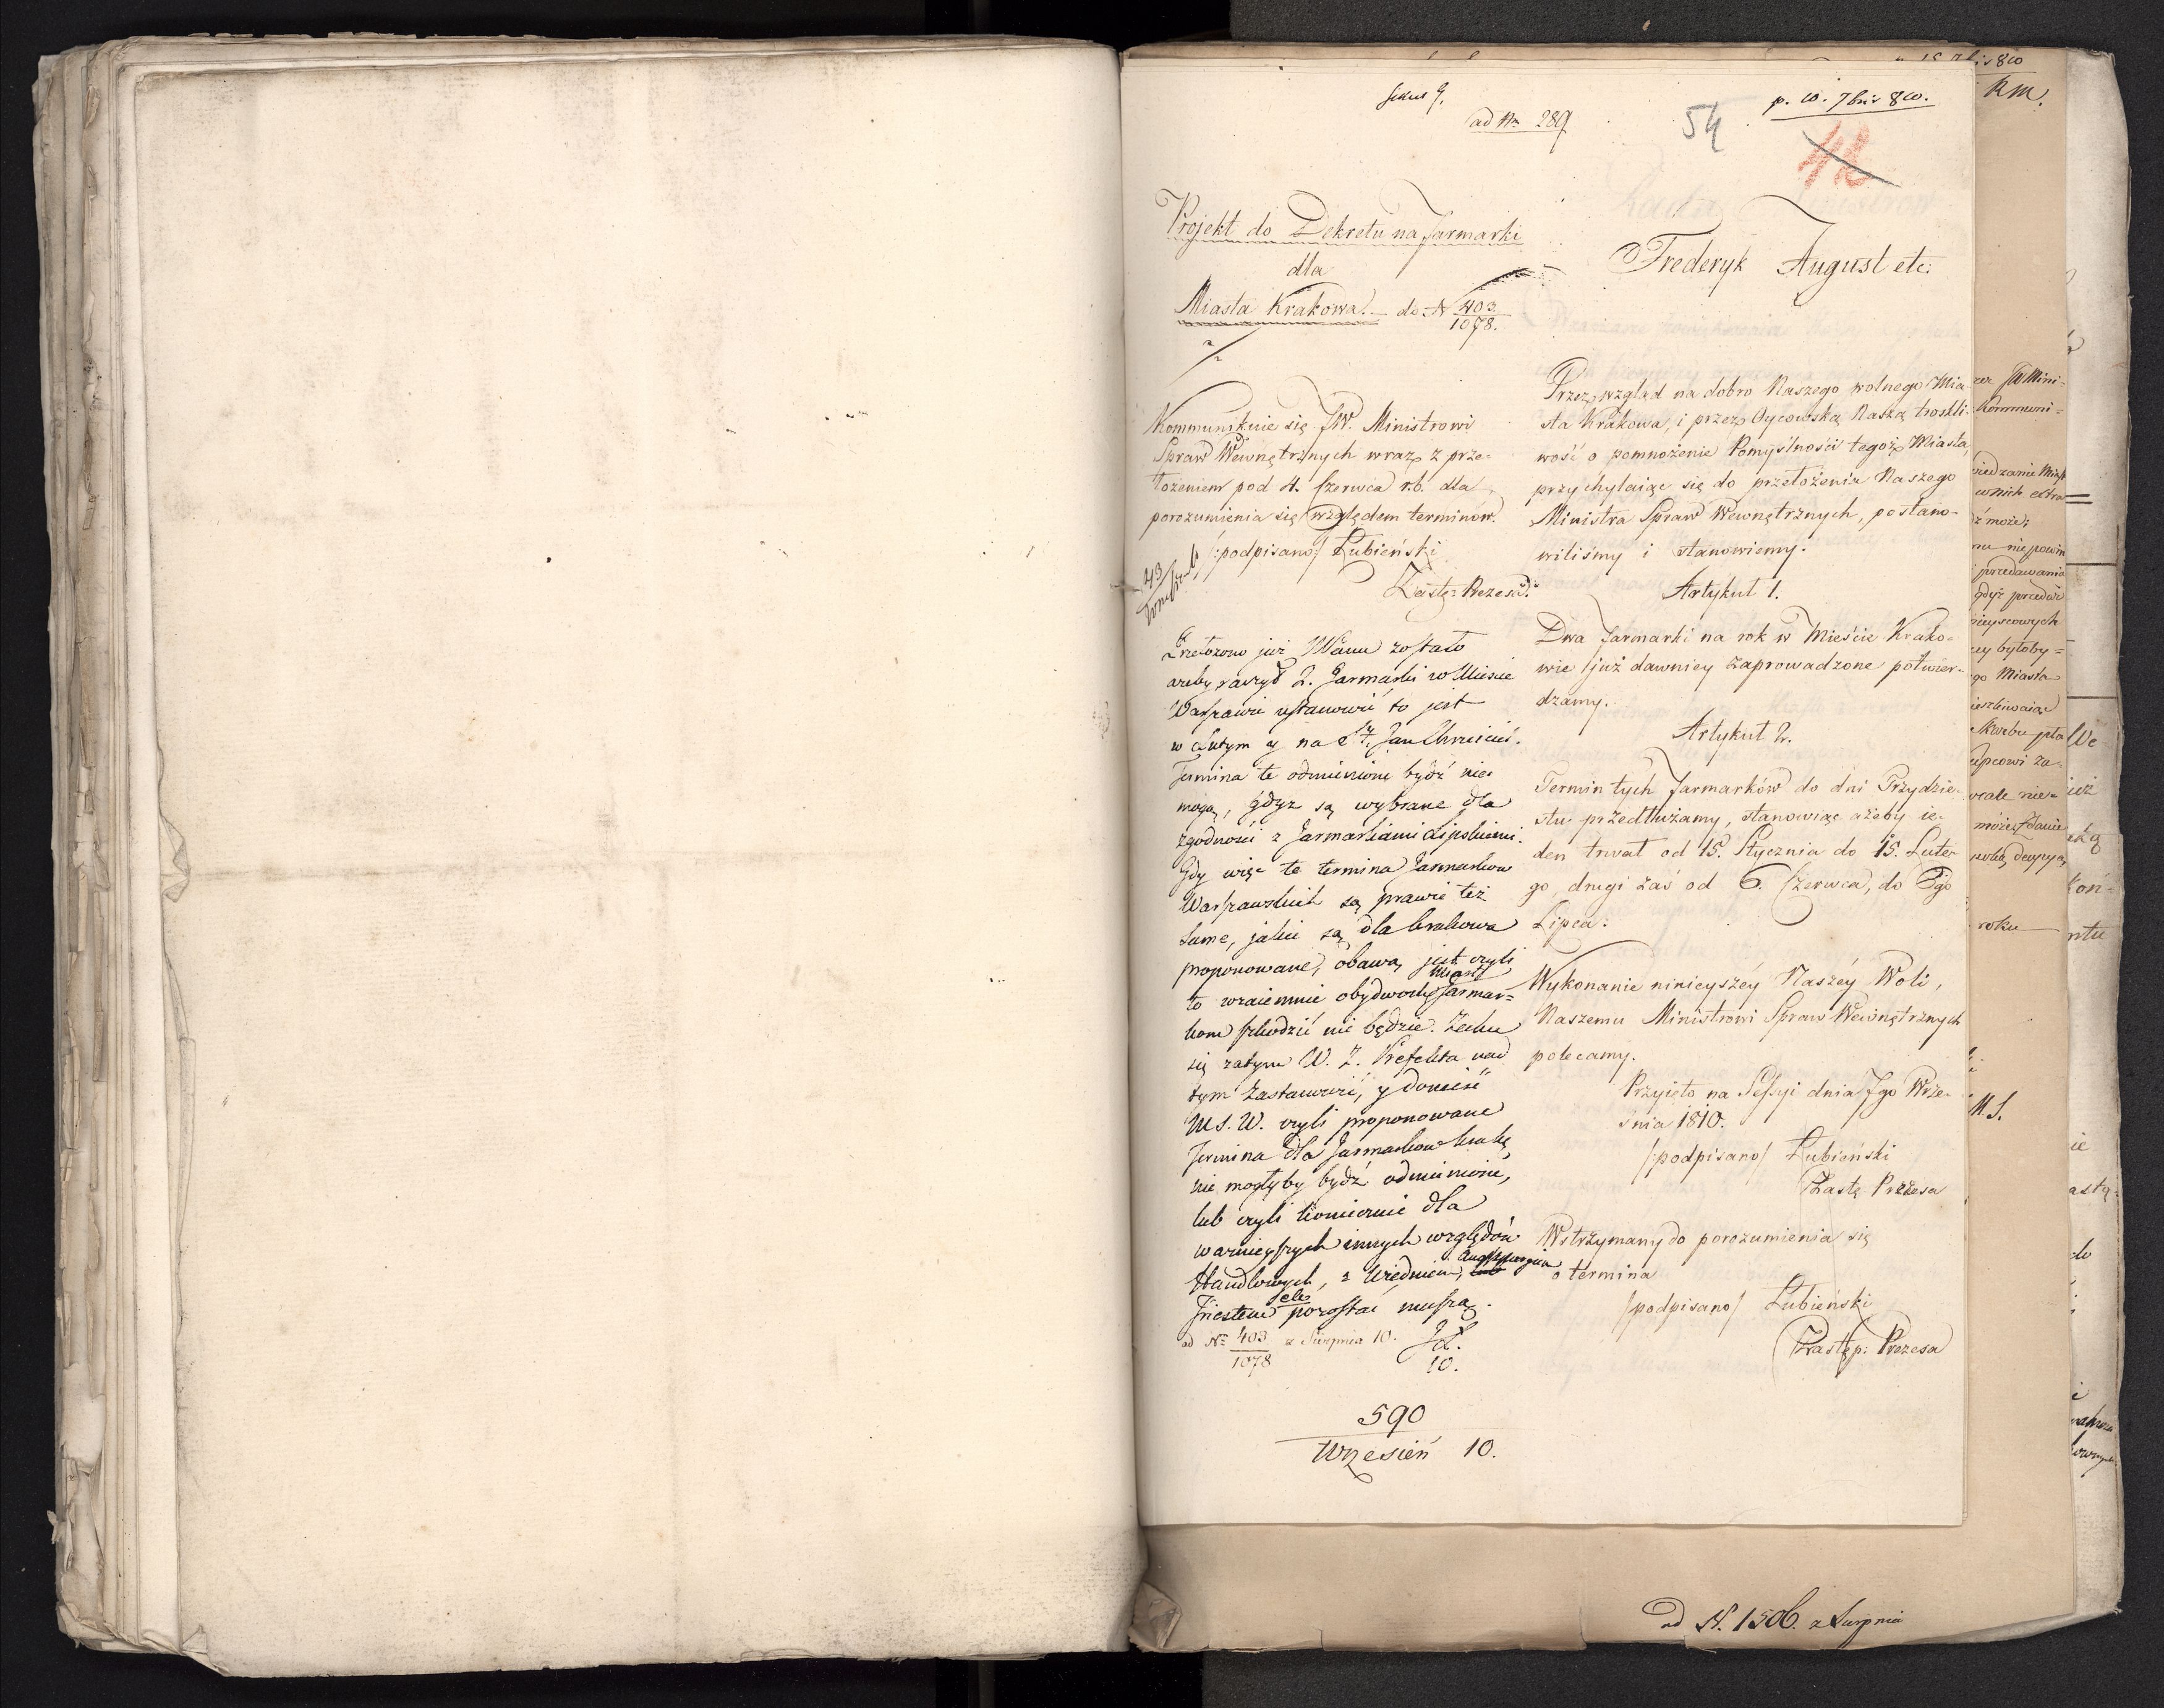 ad Nro 289
54
p. 10. 7bris 810.
Projekt do Dekretu na Jarmarki
dla
Miasta Krakowa. do N 403
1078.
Kommunikuie się JW. Ministrowi
Spraw Wewnętrznych wraz z prze=
łożeniem pod 4. Czerwca r.b. dla
porozumienia się względem terminow.
/:podpisano/ Łubieński
Zastę: Prezesa.
43
Przełożono już Wámu zostało
ażeby zawżdy 2. Jarmarki w Miescie
Warszawie ustanowić to jest
w Lutym y na St. Jan Chrzciciel.
Termina te odmienione bydź nie
mogą, gdyż są wybrane dla
zgodności z Jarmarkami Lipskiemi.
Gdy więc te termina Jarmarkow
Warszawskich są prawie też
same, jakie są dla Krakowa
proponowane, obawa jest czyli
to wzaiemnie obydwoch Miast Jarmar=
kom szkodzić nie będzie. Zechce
się zatym W. Z. Prefekta nad
tym zastanowić, y donieść
M S. W. czyli proponowane
Termina dla Jarmarkow Krako
nie mogłyby bydź odmienione,
lub czyli koniecznie dla
ważnieyszych innych względow
Handlowych, z Wiedniem, Augszpurgiem
Triestem etc pozostać muszą.
ad No 403 z Sierpnia 10.
1078
10.
590
Wrzesień 10.
Fréderyk August etc:
Przez wzgląd na dobro Naszego wolnego Mia-
sta Krakowa, i przez Oycowską Naszą troskli-
wość o pomnożenie Pomyślności tegoż Miasta,
przychylaiąc się do przełożenia Naszego
Ministra Spraw Wewnętrznych, postano-
wiliśmy i stanowiemy.
Artykuł 1.
Dwa Jarmarki na rok w Mieście Krako-
wie już dawniey zaprowadzone potwier-
dzamy.
Artykuł 2.
Termin tych Jarmarków do dni Trzydzie-
stu przedłużamy, stanowiąc ażeby ie-
den trwał od 15. Stycznia do 15. Lute-
go, drugi zaś od 6. Czerwca, do 6go
Lipca:
Wykonanie ninieyszéy Naszéy Woli,
Naszemu Ministrowi Spraw Wewnętrznych
polecamy.
Przyięto na Sessyi dnia 7go Wrze-
śnia 1810.
/:podpisano/ Łubieński
Zastę Prezesa
Wstrzymany do porozumienia się
o termina
/podpisano/ Łubieński
Zastęp: Prezesa
ad N. 1506. z Sierpnia